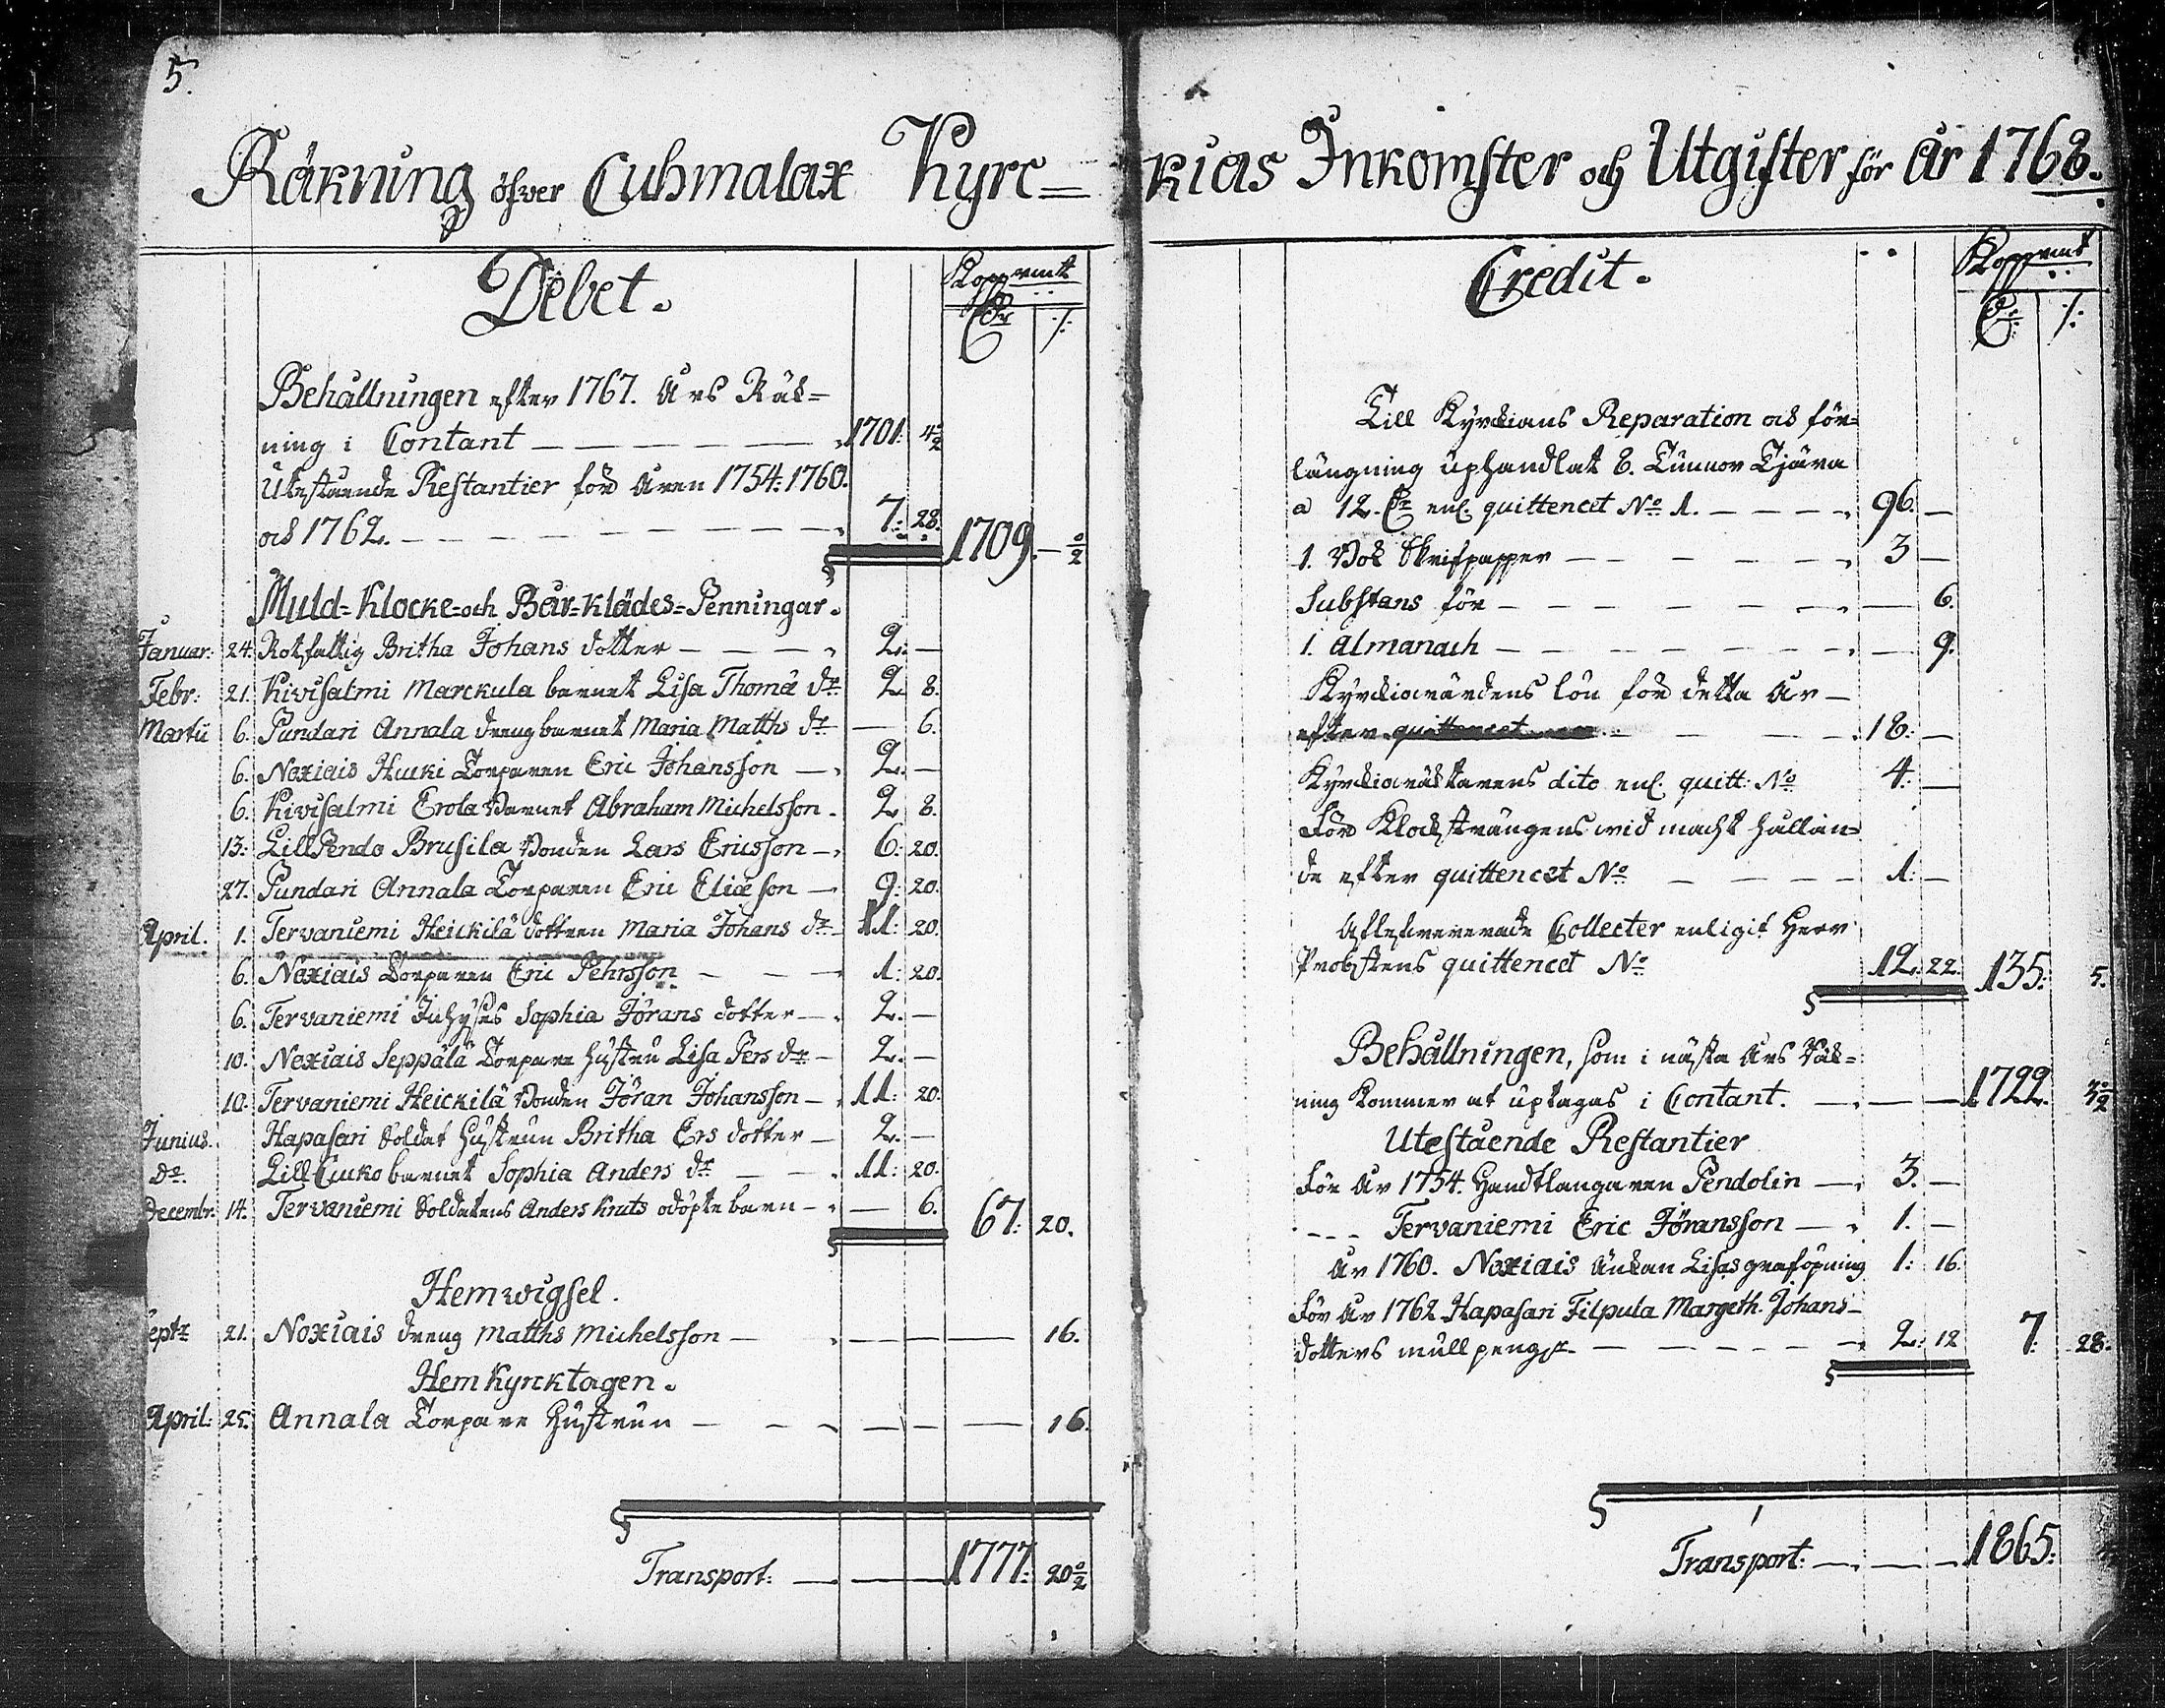 5.
Räkning öfver Cuhmalax Kyrc=
Debet.
Koppmt
Dr /:
Behållningen efter 1767. Års Räk=
ning i Contant — — — — 1701: 4½
Utestående Restantier för åren 1754: 1760.
och 1762. — — — — 7: 28. 1709. — ½
Muld= Klocke= och Bår=klädes=Penningar.
Januar: 24. Rotfattig Britha Johans dotter — — 2. —
Febr: 21. Kivisalmi Marckula barnet Lisa Thomæ dr 2 8.
Martii 6. Pundari Annala dreng barnet Maria Matths dr — 6.
6. Noxiais Hucki Torparen Eric Johansson — 2. —
6. Kivisalmi Erola Barnet Abraham Michelsson. 2 8.
13. Lill Pendo Brusila Bonden Lars Ericsson — 6: 20.
27. Pundari Annala Torparen Eric Eliæson — 9: 20.
April. 1. Tervaniemi Heickilä dottren Maria Johans dr 11: 20.
6. Noxiais Torparen Eric Pehrsson — — 1: 20.
6. Tervaniemi Juhyses Sophia Jörans dotter — 2. —
10. Noxiais Seppälä Torpare hustru Lisa Pers dr — 2. —
10. Tervaniemi Heickilä Bonden Jöran Johansson — 11: 20.
Junius. Hapasari Soldat hustrun Britha Ers dotter — 2. —
Do. Lill Cuko barnet Sophia Anders dr — 11: 20.
Decembr. 14. Tervaniemi Soldatens Anders Knuts odöpte barn — — 6. 67: 20.
Hemwigsel.
eptr 21. Noxiais dreng Matths Michelsson — — — 16.
Hemkyrcktagen.
April: 25. Annala Torpare Hustrun — — — 16.
Transport: — — 1777: 20½
kias Inkomster och Utgifter för År 1768.
Credit.
Koppmt
Dr: /:
Till Kyrckians Reparation och för=
längning uphandlat 8. Tunnor Tjära
a 12. Dr enl. quittencet No 1. — — — 96. —
1. Bok Skrifpapper — — — — 3 —
Substans för — — — — — 6.
1. Almanach — — — — — 9.
Kyrckiowärdens lön för detta år —
efter quittencet — — — 18. —
Kyrckiowäktarens dito enl. quitt: No 4. —
För Klocksträngens wid macht hållan=
de efter quittencet No — — — 1: —
Aflefwererade Collecter enligit Herr
Probstens quittencet No 12. 22. 135: 5.
Behållningen, som i nästa Års Räk=
ning kommer at uptagas i Contant. — — 1722. 3½
Utestående Restantier
För År 1754. Handtlangaren Pendolin — 3. —
- - - Tervaniemi Eric Jöransson — 1. —
År 1760. Noxiais Änkan Lisas graföpning 1: 16.
För År 1762 Hapasari Filpula Margeth. Johans-
dotters mullpengr — — — 2: 12 7. 28.
Transport: — — 1865: